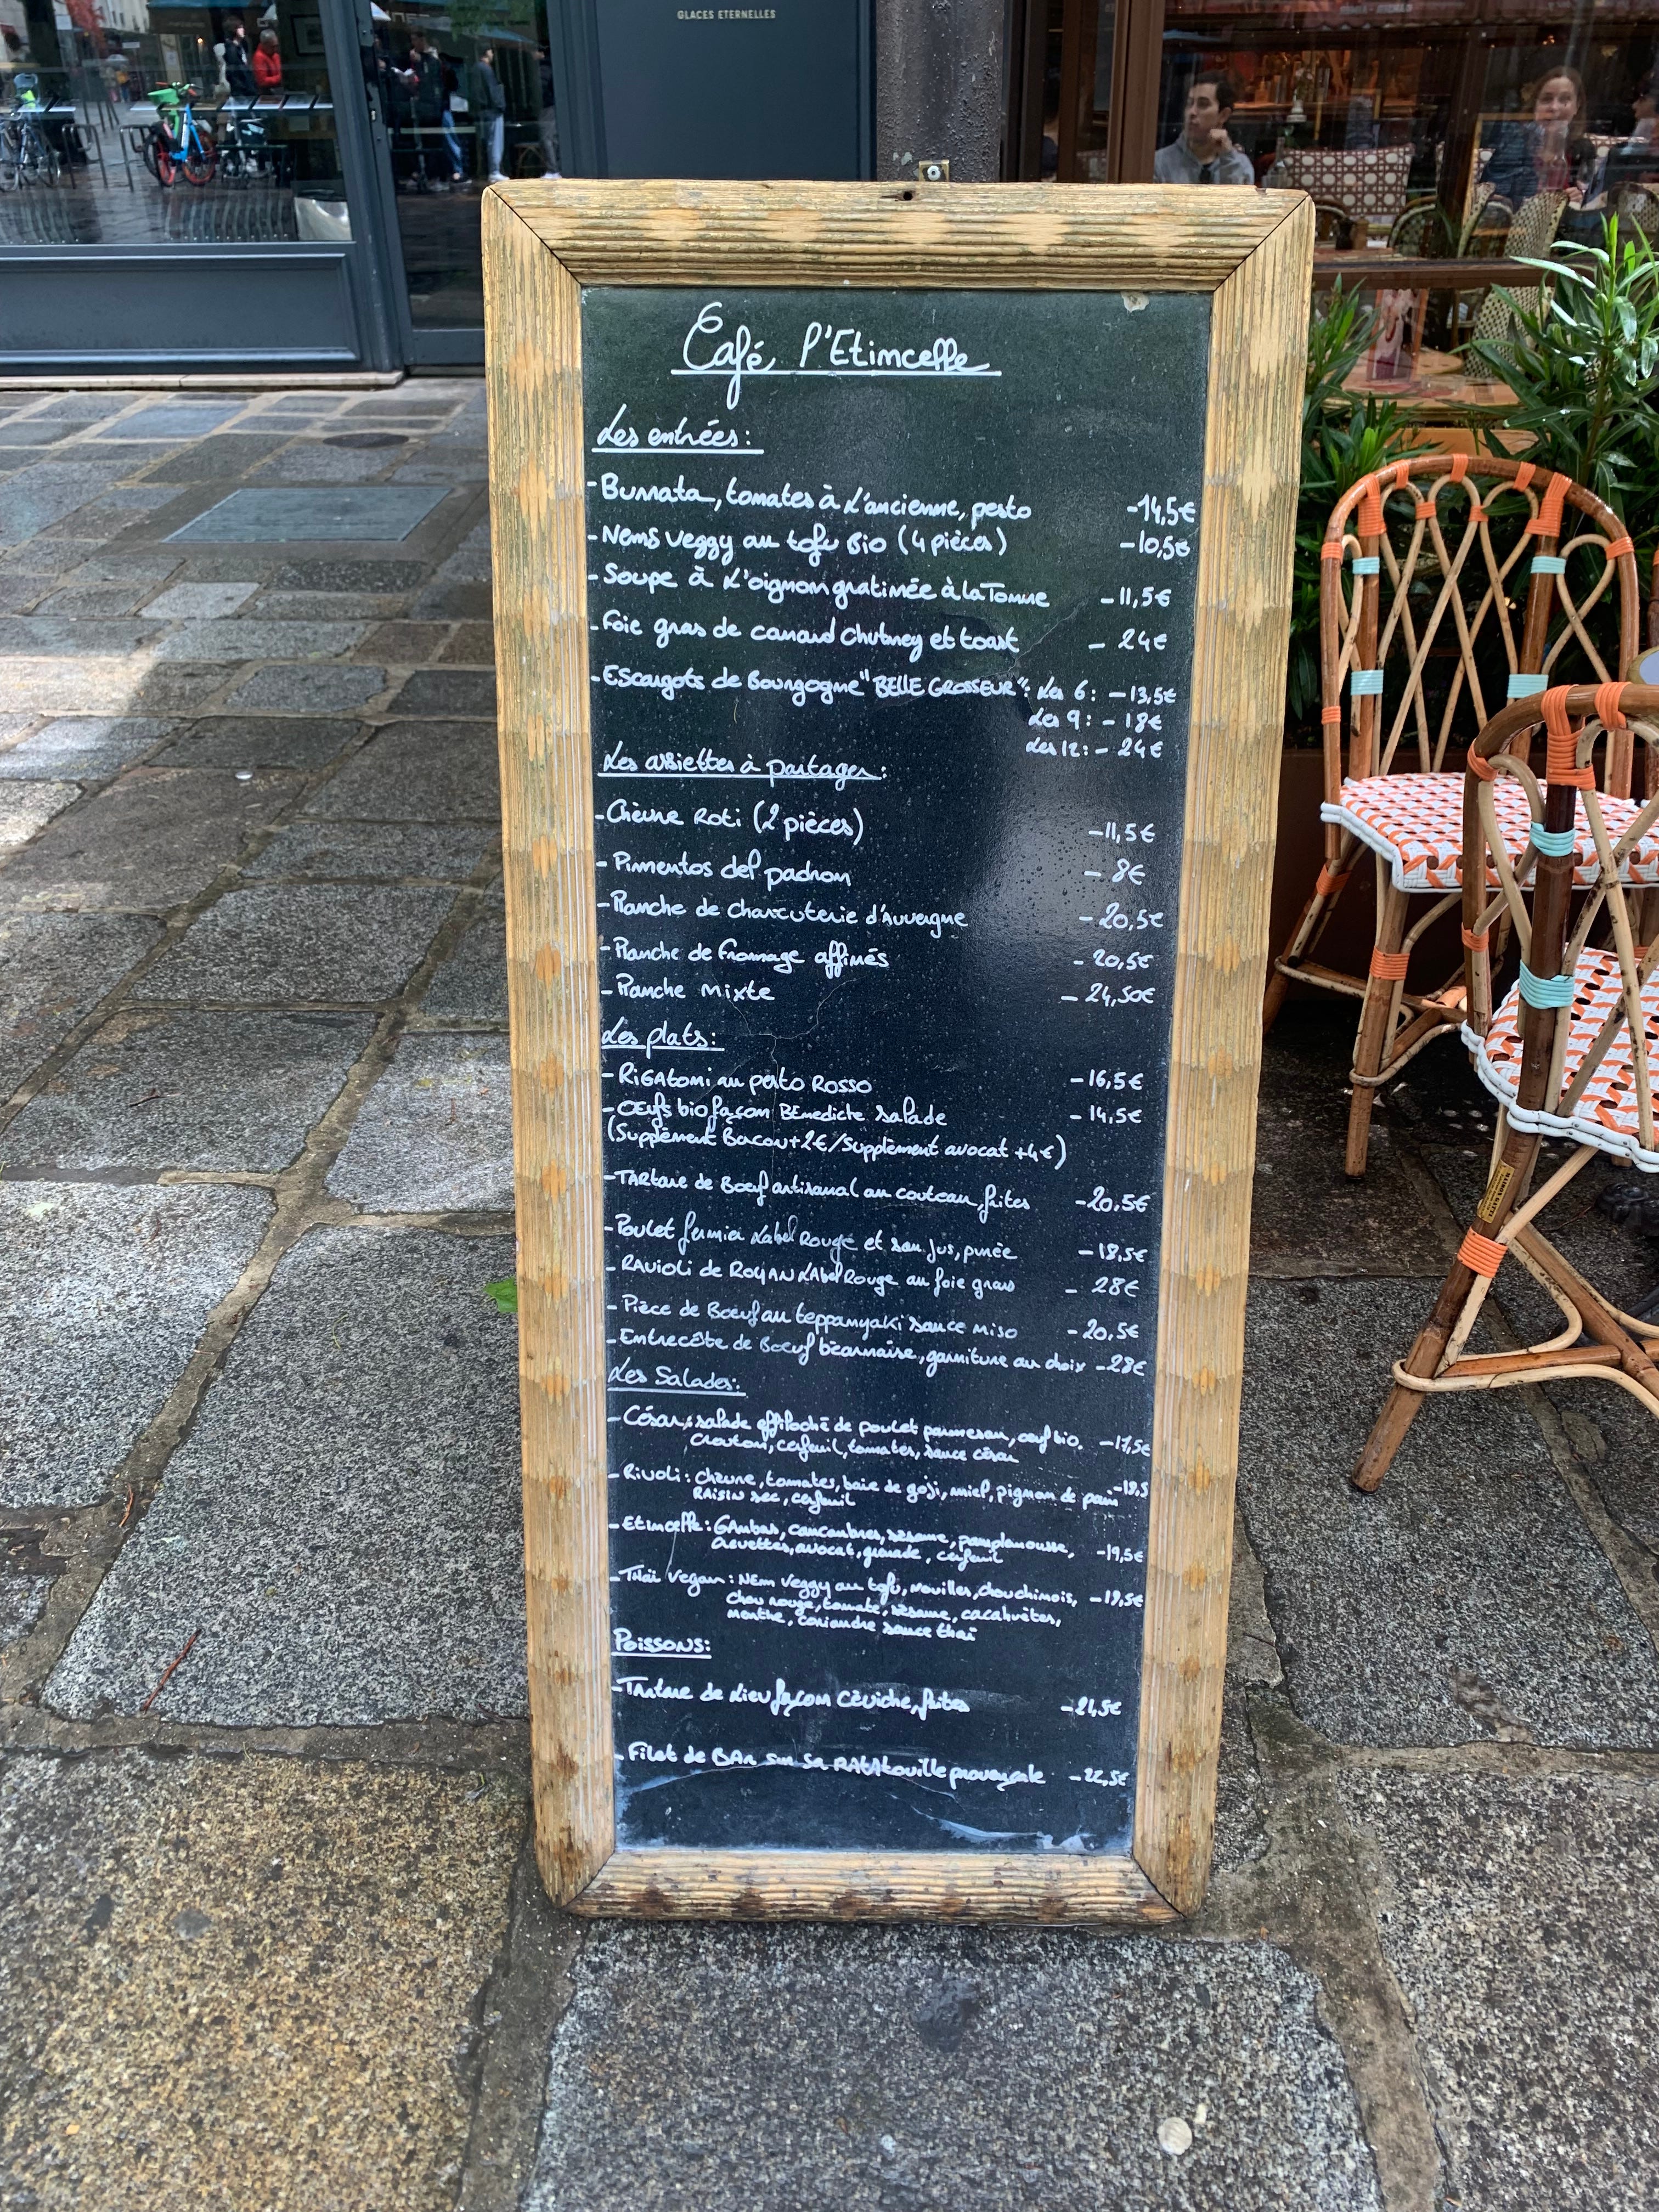 GLACES ETERNELLES
Café l'Etincelle
Les entrées:
- Burrata, tomates à L'ancienne, pesto -14,5€
- Nems veggy au tofu Bio (4 pièces) -10,5€
- Soupe à L'oignon gratinée à la Tomme - 11,5€
- Foie gras de canard Chutney et toast - 24€
- Escargots de Bourgogne "BELLE GROSSEUR": Les 6: - 13,5€
Les 9: - 18€
Les 12: - 24€
Les assiettes à partager:
- Chèvre Roti (2 pièces) - 11,5€
- Pimentos del padron - 8€
- Planche de charcuterie d'Auvergne - 20,5€
- Planche de fromage affinés - 20,5€
- Planche mixte - 24,50€
Les plats:
- RIGAtoni au pesto ROSSO - 16,5€
- Œufs bio façon BEnedicte salade - 14,5€
(Supplèment Bacon +2€/Supplèment avocat +4€)
- TARtare de Bœuf artisanal au couteau, frites - 20.5€
- Poulet fermier Label Rouge et son jus, purée - 18,5€
- RAVioli de ROYAN LAbel Rouge au foie gras - 28€
- Pièce de Bœuf au teppanyaki sauce miso - 20,5€
- Entrecôte de Bœuf béarnaise, garniture au choix - 28€
Les Salades:
- César: salade effiloché de poulet parmesan, œuf bio. - 17,5€
crouton, cerfeuil, tomates, sauce césar
- Rivoli: chèvre, tomates, baie de goji, miel, pignon de pain
RAISIN sec, cerfeuil
- Etincelle: GAmbas, concombres, sésame, pamplemousse, - 19,5€
crevettes, avocat, grenade, cerfeuil
- Thaï vegan: NEm veggy au tofu, nouilles, chou chinois, - 19,5€
chou rouge, tomate, sésame, cacahuètes,
menthe, coriandre sauce thaï
Poissons:
- Tartare de Lieu façon Céviche, frites - 21,5€
- Filet de BAr sur sa RAtAtouille provençale - 22,5€